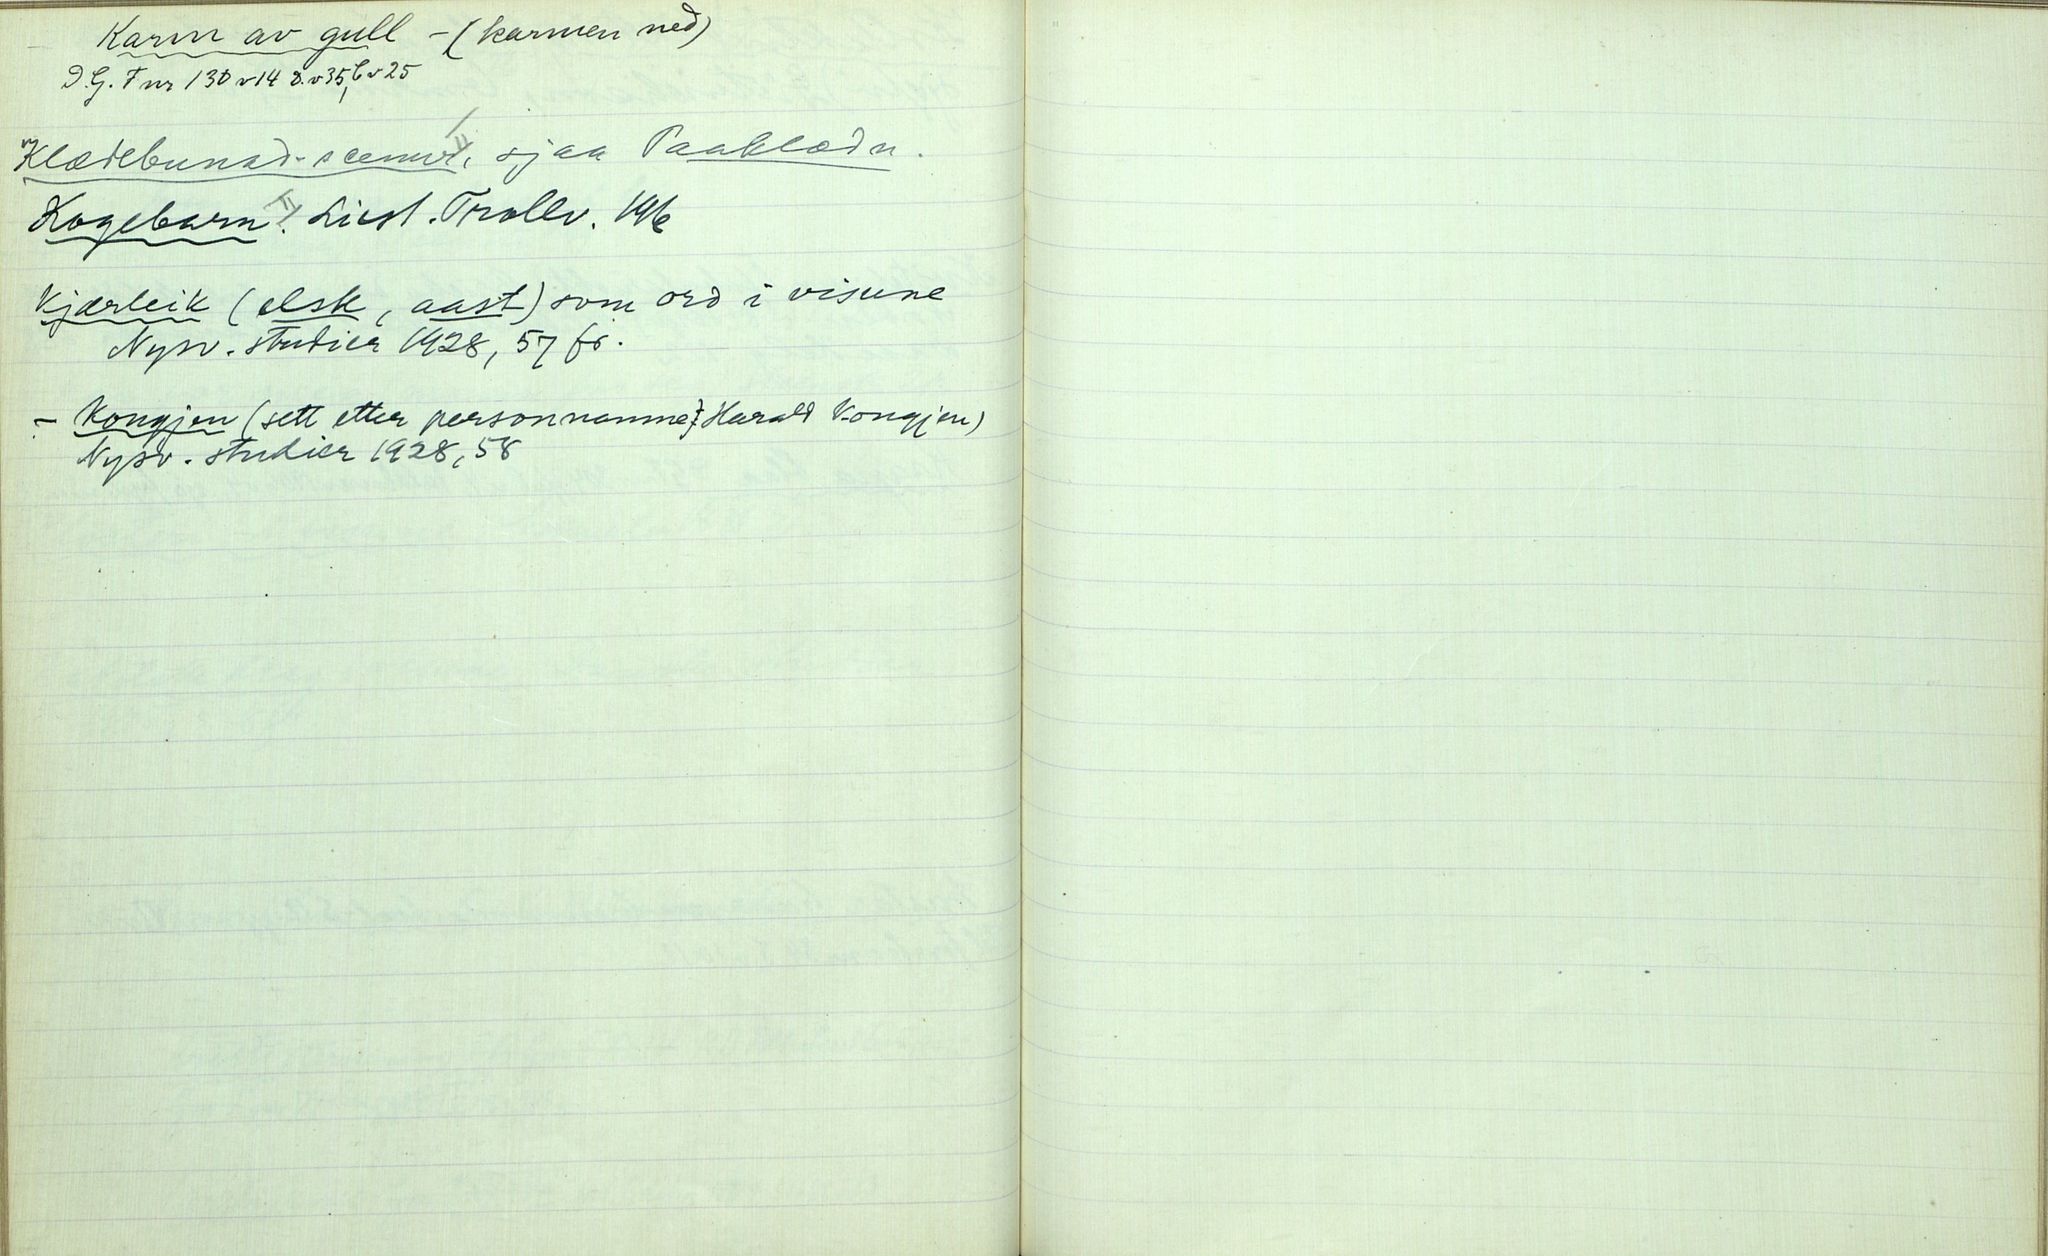 Karm av gull - (karmen ned)
D.G.F nr 13D v14 D. v35, C v25
Klædebunad-scenur, sjaa Paaklædn.
Kogebarn. Liest. Trollv. 196
Kjærleik (elsk, aast) som ord i visune
Nysv. studier 1928, 57 fr.
- Kongjen (sett etter personnamne: Harald Kongjen)
Nysv. studier 1928, 58